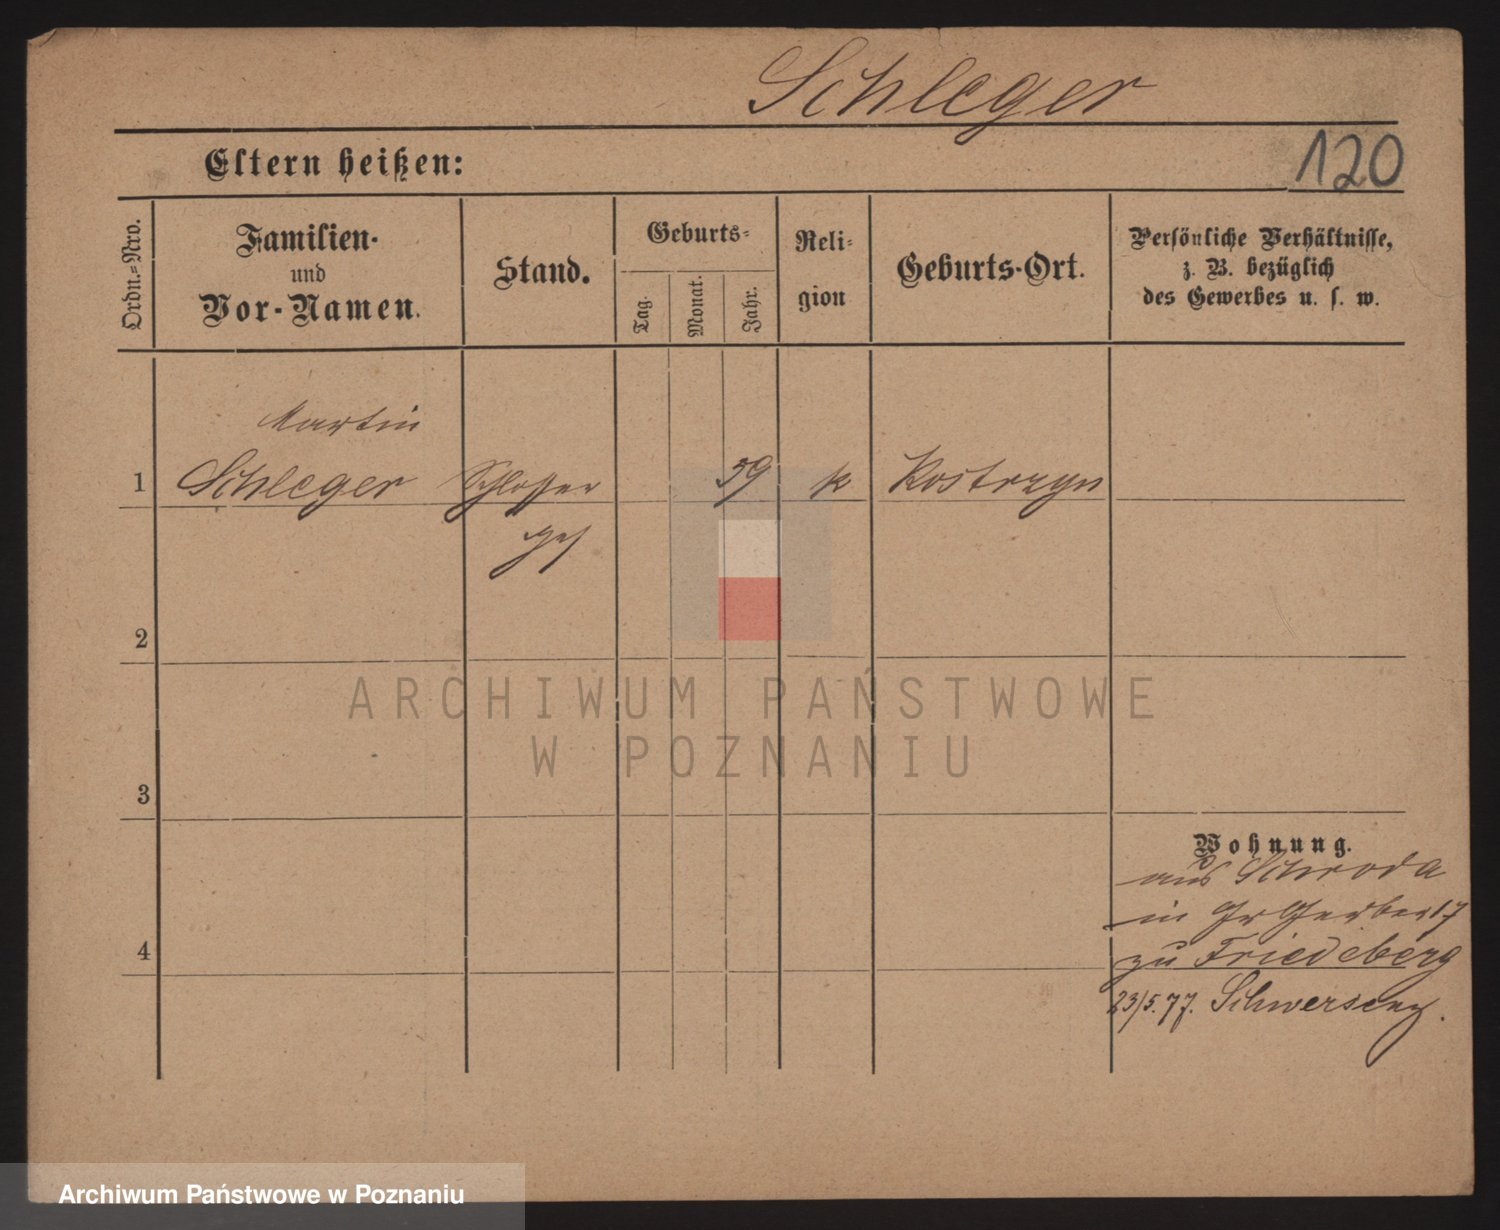 Schleger
120
Eltern heißen:
Ordn.=Nro.
Familien-
und
Vor-Namen.
Stand.
Geburts-
Tag.
Monat.
Jahr.
Reli-
gion
Geburts-Ort.
Persönliche Verhältnisse,
z. B. bezüglich
des Gewerbes u. s. w.
Martin
1 Schleger Schlosser 59 k Kostrzyn
ges
2
3
4
Wohnung.
aus Schroda
in Gr Gerber 17
zu Friedeberg
23/5.77. Schwersenz.
ARCHIWUM PAŃSTWOWE
W POZNANIU
Archiwum Państwowe w Poznaniu